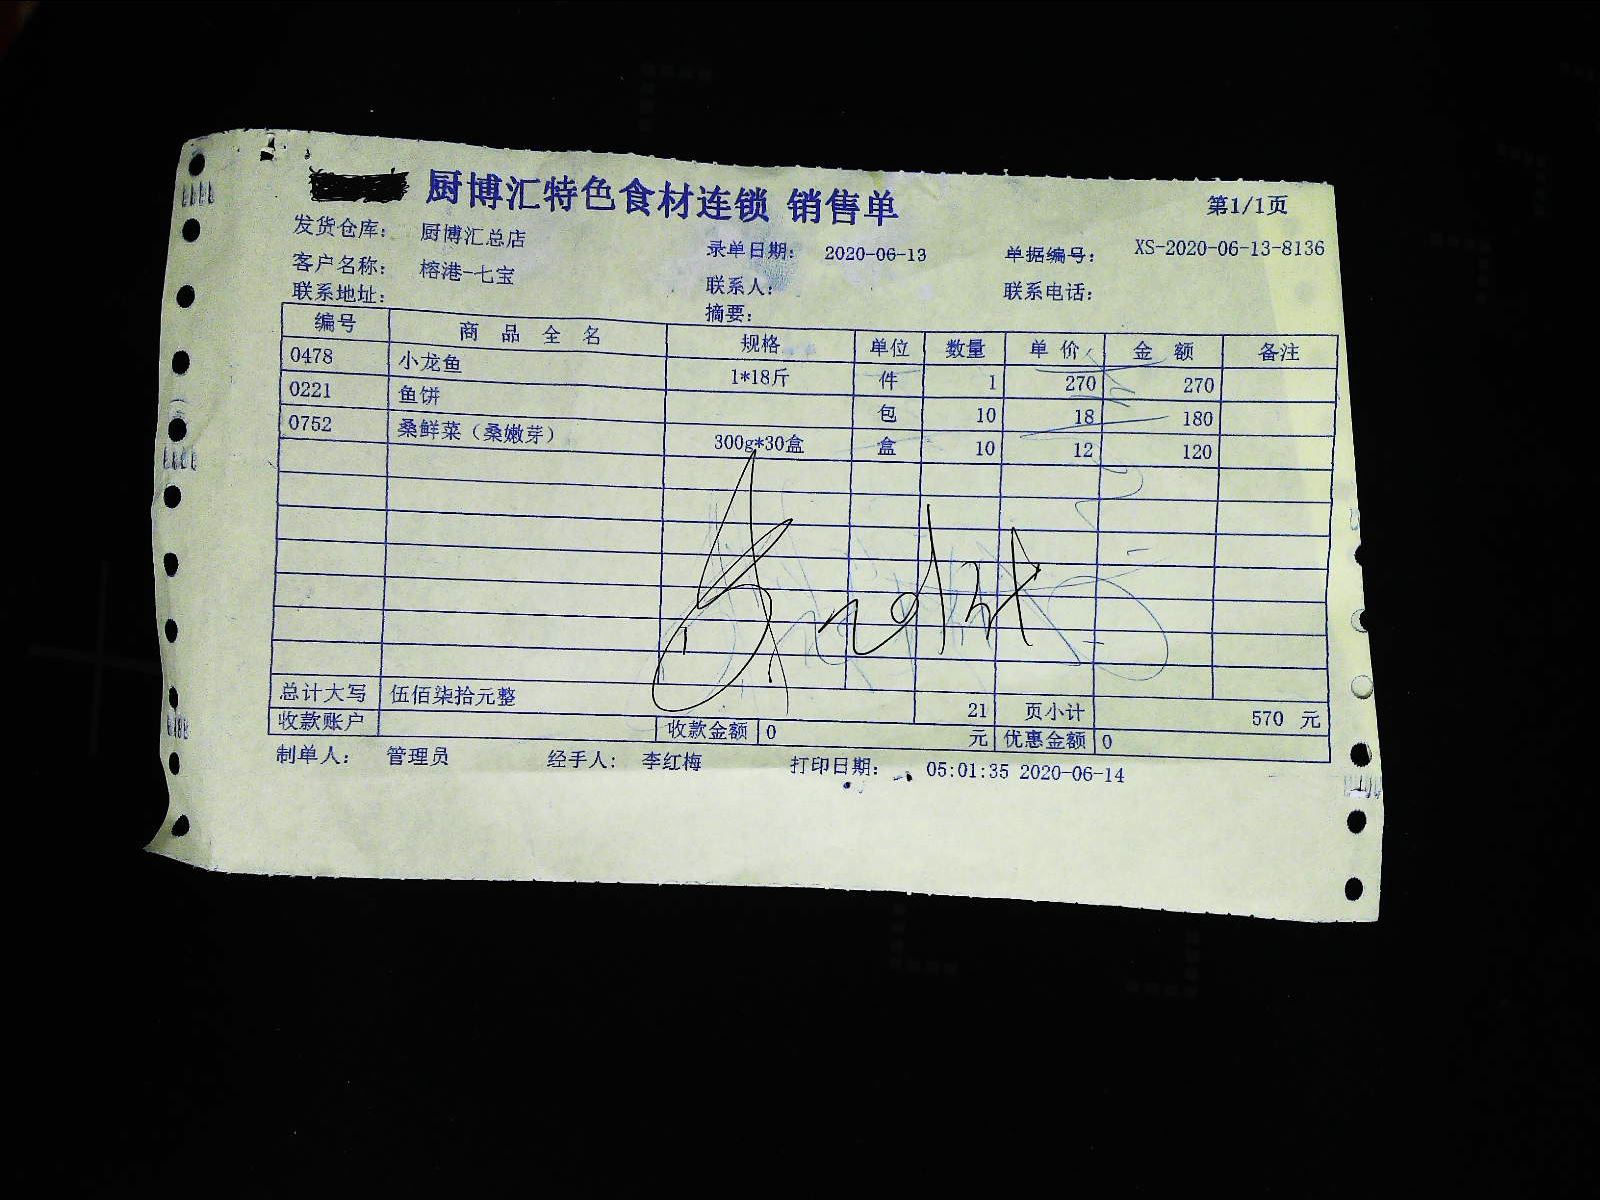 厨博汇特色食材连锁 销售单 第1/1页
发货仓库： 厨博汇总店 录单日期： 2020-06-13 单据编号： XS-2020-06-13-8136
客户名称： 榕港-七宝 联系人： 联系电话：
联系地址： 摘要：
编号 商品全名 规格 单位 数量 单价 金额 备注
0478 小龙鱼 1*18斤 件 1 270 270
0221 鱼饼 包 10 18 180
0752 桑鲜菜（桑嫩芽） 300g*30盒 盒 10 12 120
总计大写 伍佰柒拾元整 21 页小计 570 元
收款账户 收款金额 0 元 优惠金额 0
制单人： 管理员 经手人： 李红梅 打印日期： 05:01:35 2020-06-14